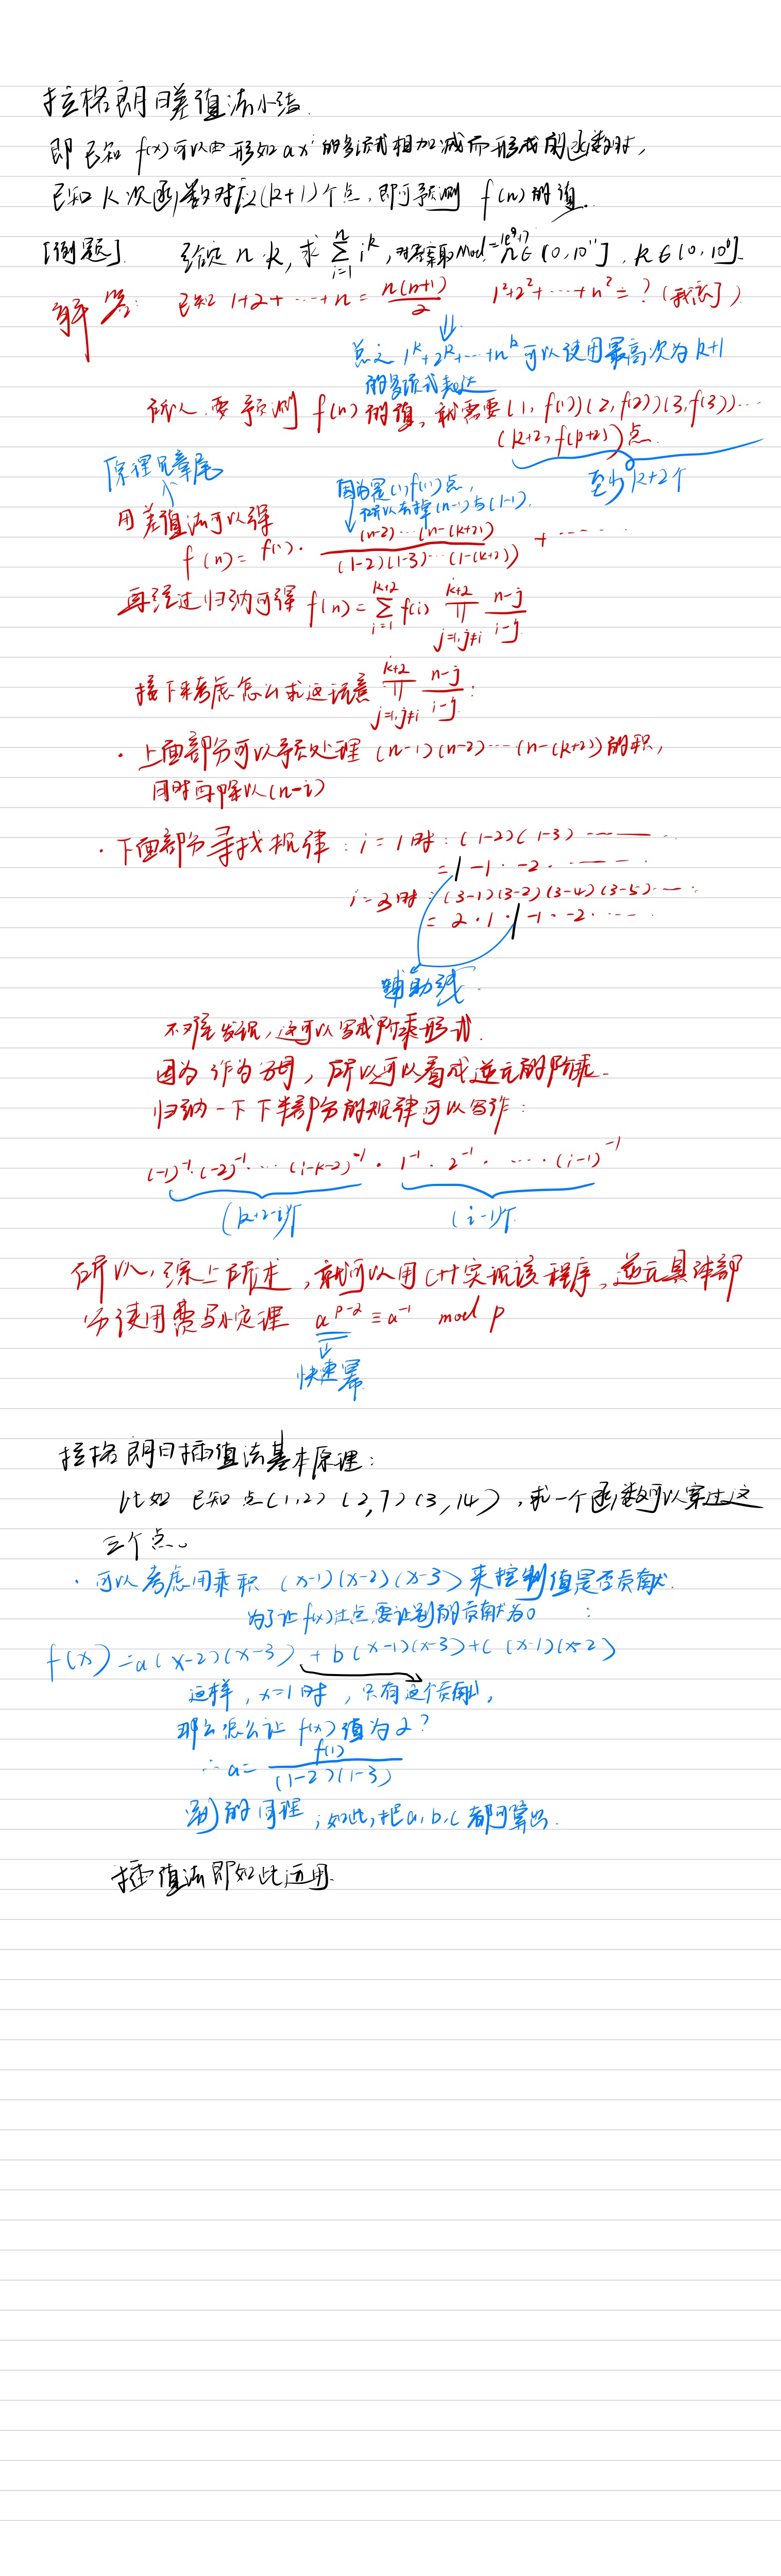 拉格朗日差值法小结.
即已知 f(x)可以由形如 axⁱ 的多项式相加减而形成的函数时,
已知 k 次函数对应(k+1)个点,即可预测 f(n)的值.
[例题]. 给定 n k, 求 ∑_{i=1}^{n} i^k, 对答案取Mod=1e9+7 n∈(0,10^11], k∈(0,10^6].
解答: 已知 1+2+⋯+n = n(n+1)/2 1²+2²+⋯+n²=?(我忘了)
总之 1^k+2^k+⋯+n^k 可以使用最高次为 k+1
的多项式表达
所以,要预测 f(n)的值,就需要(1, f(1))(2, f(2))(3, f(3))⋯
(k+2, f(k+2))点.
至少k+2个
原理见章尾
因为是(1,f(1))点,
所以去掉(n-1)与(1-1).
用差值法可以得
f(n)= f(1)· (n-2)⋯(n-(k+2))/(1-2)(1-3)⋯(1-(k+2)) + ⋯⋯
再经过归纳可得 f(n)=∑_{i=1}^{k+2} f(i) ∏_{j=1,j≠i}^{k+2} (n-j)/(i-j)
接下来考虑怎么求这玩意 ∏_{j=1,j≠i}^{k+2} (n-j)/(i-j) :
· 上面部分可以预处理 (n-1)(n-2)⋯(n-(k+2))的积,
同时再除以(n-i)
· 下面部分寻找规律: i=1时: (1-2)(1-3) ⋯⋯
= | -1 · -2 · ⋯⋯
i=3时: (3-1)(3-2)(3-4)(3-5)⋯
= 2 · 1 · | -1 · -2 · ⋯⋯
辅助线.
不难发现,这可以写成阶乘形式.
因为作为分母,所以可以看成逆元的阶乘.
归纳一下下半部分的规律可以写作:
(-1)⁻¹·(-2)⁻¹⋯(i-k-2)⁻¹ · 1⁻¹ · 2⁻¹ · ⋯ · (i-1)⁻¹
(k+2-i)个
(i-1)个
所以,综上所述,就可以用C++实现该程序,逆元具体部
分使用费马小定理 a^{p-2} ≡ a⁻¹ mod p
快速幂
拉格朗日插值法基本原理:
比如 已知点(1,2)(2,7)(3,14),求一个函数可以穿过这
三个点。
· 可以考虑用乘积 (x-1)(x-2)(x-3)来控制值是否贡献.
为了让f(x)过点,要让别的贡献为0 :
f(x)=a(x-2)(x-3)+b(x-1)(x-3)+c(x-1)(x-2)
这样, x=1时,只有这个贡献,
那么怎么让 f(x)值为2?
∴ a= f(1)/(1-2)(1-3)
别的同理,如此,把a,b,c都可算出.
插值法即如此运用.